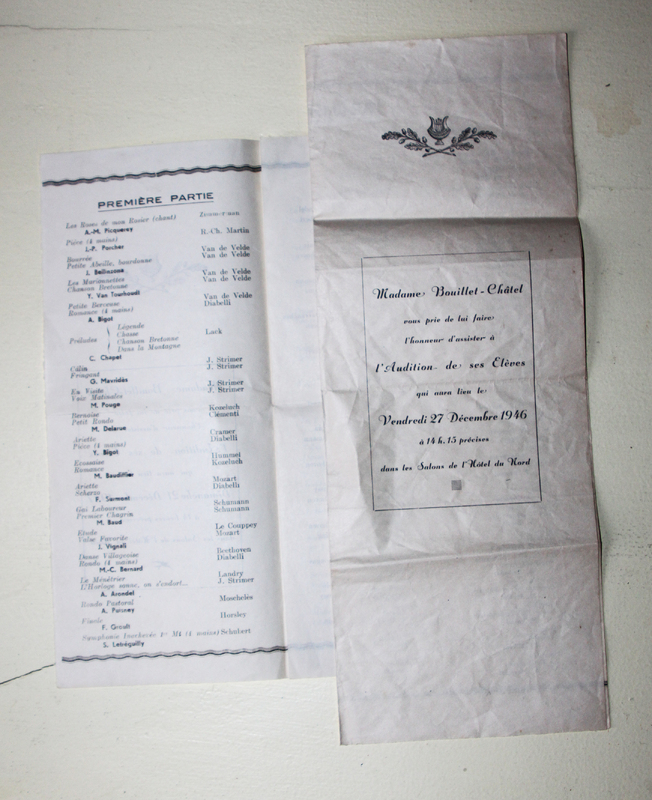 PREMIÈRE PARTIE
Les Roses de mon Rosier (chant)
A.-M. Picquerey R.-Ch. Martin
Pièce (4 mains) Van de Velde
J.-P. Porcher
Bourrée Van de Velde
Petite Abeille, bourdonne
J. Bellozane Van de Velde
Les Marionnettes Van de Velde
Chanson Bretonne
Y. Van Tourhoudt
Petite Berceuse Van de Velde
Romance (4 mains) Diabelli
A. Bigot
Légende
Chasse
Préludes Chanson Bretonne Lack
Dans la Montagne
C. Chapel
Câlin J. Strimer
Fringant J. Strimer
G. Mavridès
En Visite J. Strimer
Voix Matinales J. Strimer
M. Pouge
Bernoise Kozeluch
Petit Rondo Clémenti
M. Delarue
Ariette Cramer
Pièce (4 mains) Diabelli
Y. Bigot
Ecossaise Hummel
Romance Kozeluch
M. Baudiffier
Ariette Mozart
Scherzo Diabelli
F. Sermont
Gai Laboureur Schumann
Premier Chagrin Schumann
M. Baud
Etude Le Couppey
Valse Favorite Mozart
J. Vignoli
Danse Villageoise Beethoven
Rondo (4 mains) Diabelli
M.-C. Bernard
Le Ménétrier Landry
L'Horloge sonne, on s'endort... J. Strimer
A. Arondel
Rondo Pastoral Moschelès
A. Poisney
Horsley
F. Groult
Symphonie Inachevée 1er Mt (4 mains) Schubert
S. Letréguilly
Madame Bouillet-Châtel
vous prie de lui faire
l'honneur d'assister à
l'Audition de ses Elèves
qui aura lieu le
Vendredi 27 Décembre 1946
à 14 h. 15 précises
dans les Salons de l'Hôtel du Nord